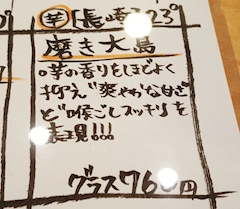 芋 長崎 23°
磨き大島
○芋の香りをほどよく
抑え〝爽やかな甘さ
と〝喉ごしスッキリ〟を
表現!!!
グラス760円